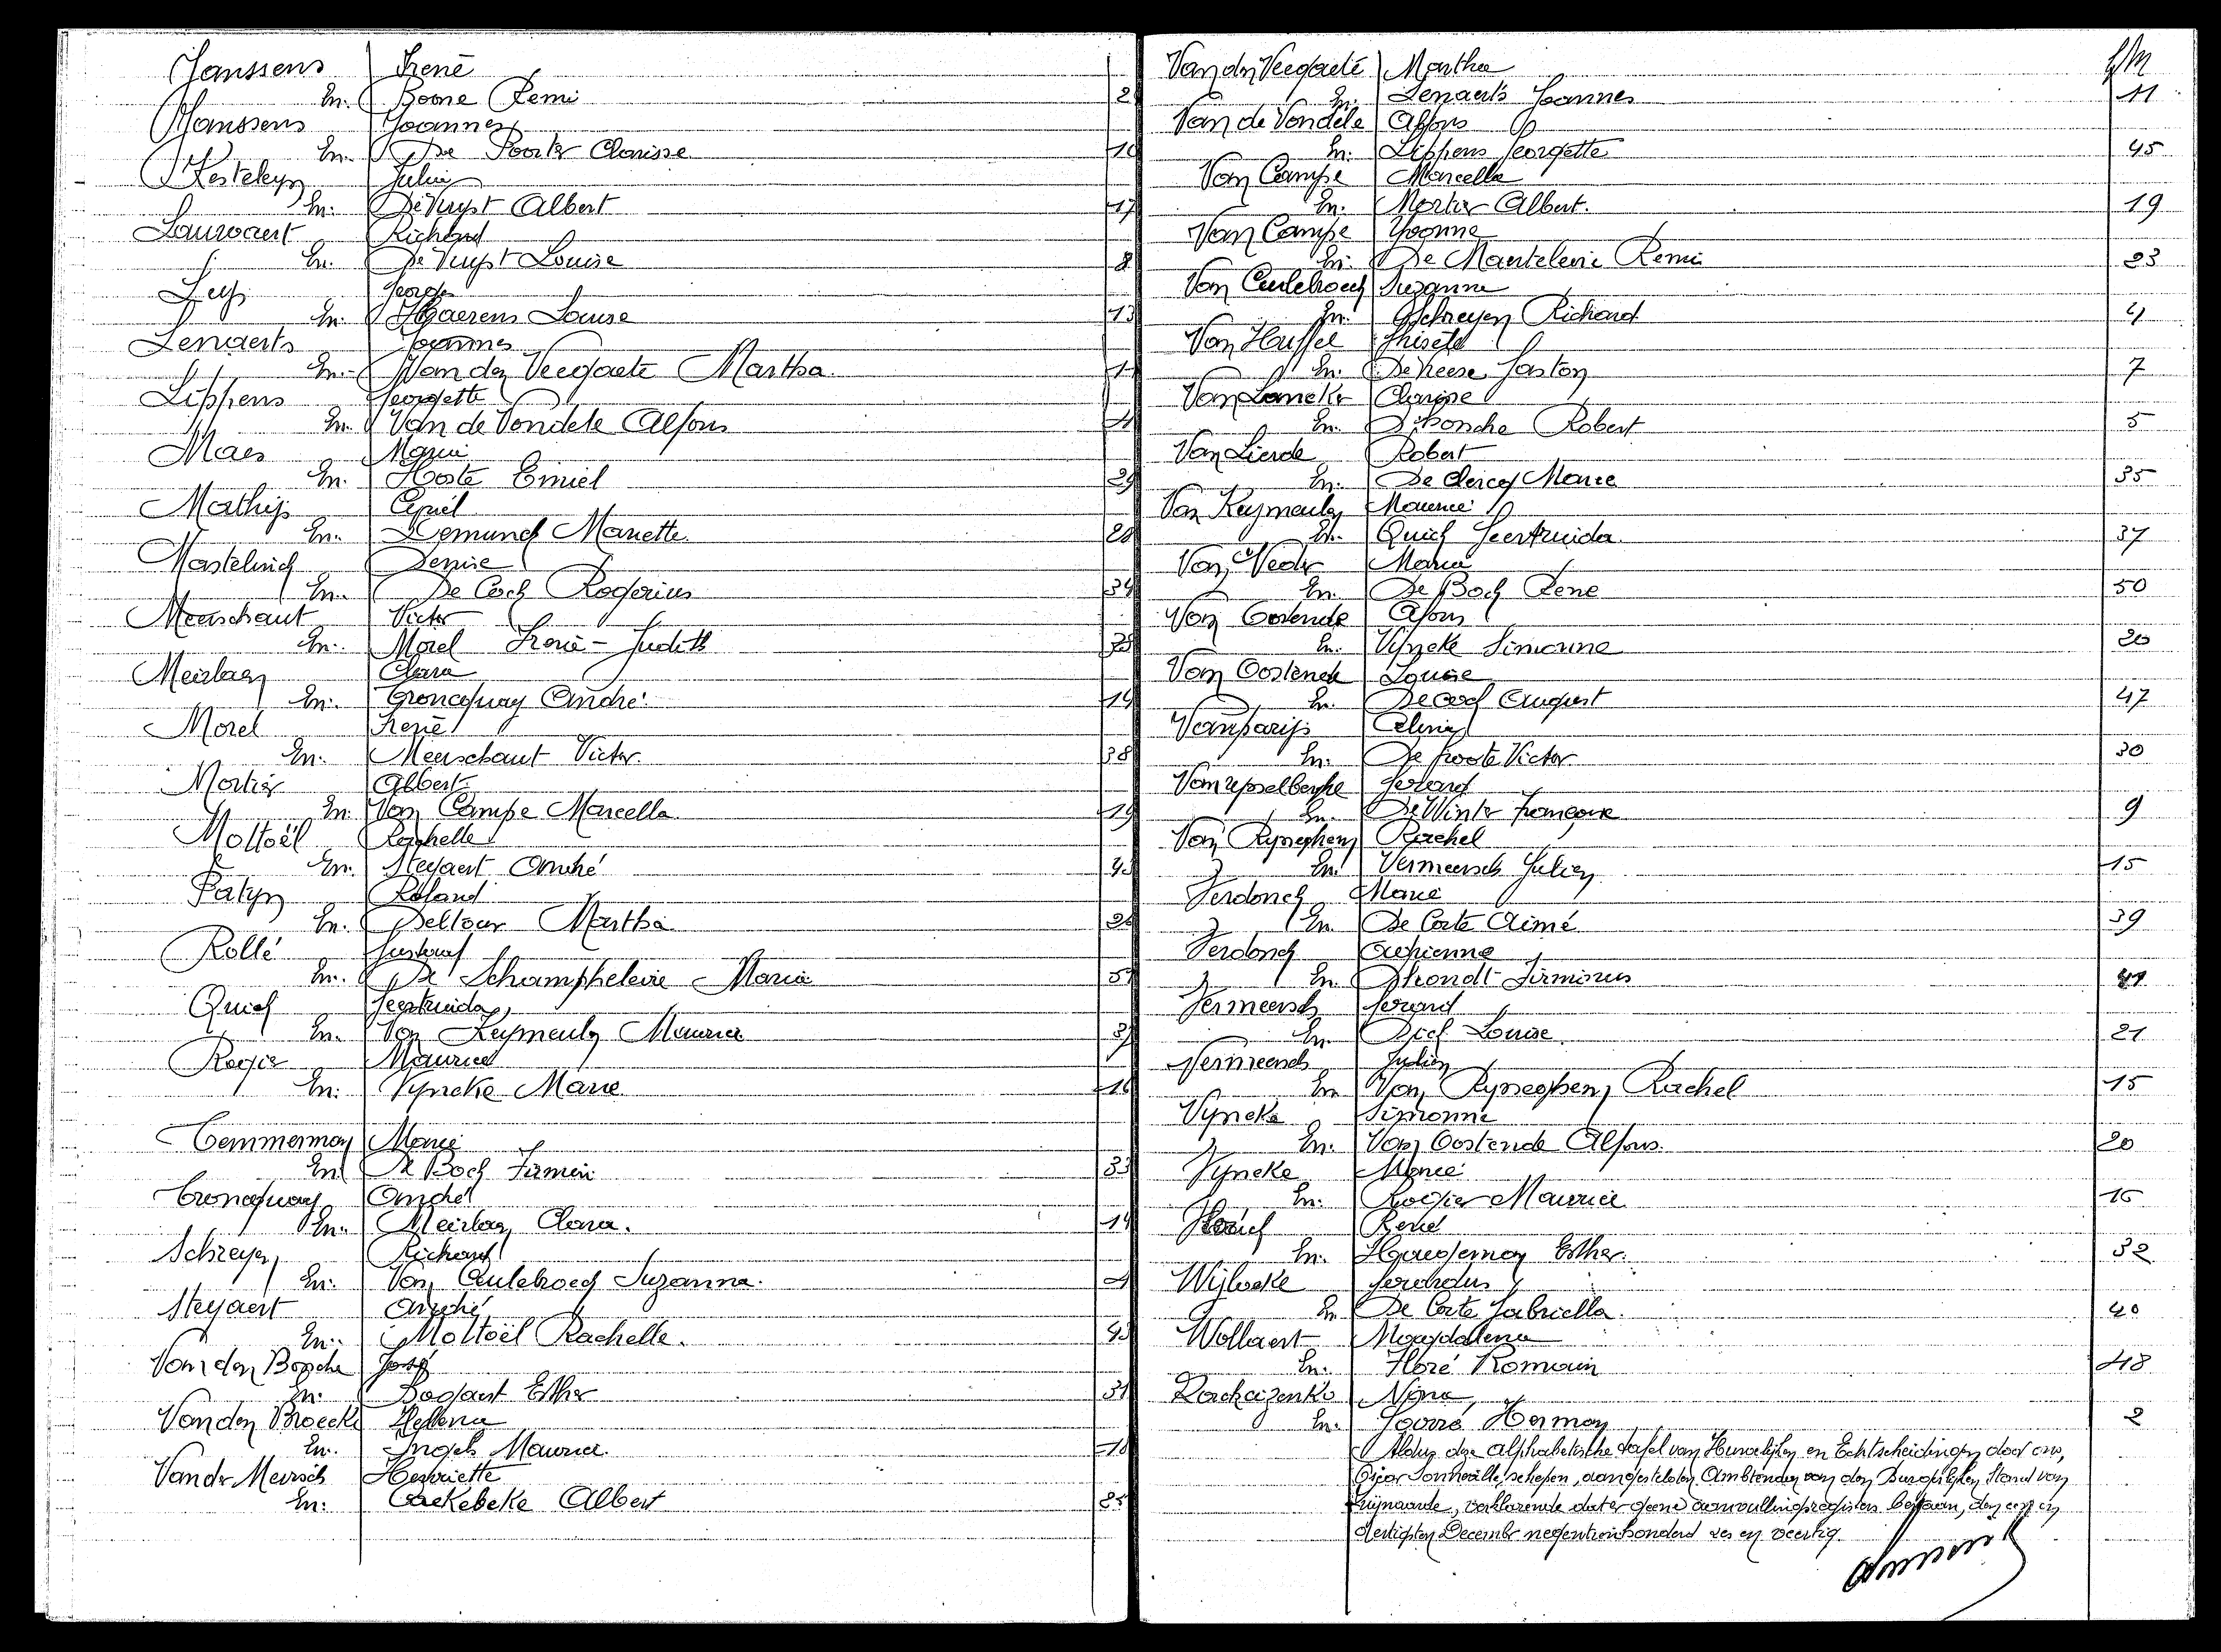 Janssens Irenè
En. Boone Remi 2
Janssens Joannes
En. De Poorter Clarisse 10
Kesteleyn Julia
En. De Vuyst Albert 17
Lauwaert Richard
En. De Vuyst Louise 8
Leys George
En. Haerens Louise 13
Lenaerts Joannes
En. Van den Veegaete Martha 11
Lippens Georgette
En. Van de Vondele Alfons
Maes Maria
En. Hoste Emiel 29
Mathijs Cyriel
En. Demunck Mariette 28
Mastelinck Denise
En. De Cock Rogerius 34
Meerschaut Victor
En. Morel Irenè-Judith 38
Meirlaen Clara
En. Troncquay André 14
Morel Irenè
En. Meerschaut Victor 38
Mortier Albert
En. Van Campe Marcella 19
Moltoël Rachelle
En. Steyaert André 43
Patyn Roland
En. Deltour Martha
Rollé Gustaaf
En. De Schampheleire Maria
Quick Geertruida
En. Van Keymeulen Maurice 37
Rogier Maurice
En. Vyncke Marie 16
Temmerman Marie
En. De Bock Firmin 33
Troncquay André
En. Meirlaen Clara. 14
Schreyen Richard
En. Van Ceulebroeck Suzanna. 4
Steyaert André
En. Moltoël Rachelle. 43
Van den Bossche José
En. Bogaert Esther 31
Van den Broecke Hellena
En. Ingels Maurice 18
Vander Meirsch Henriette
En. Caekebeke Albert 25
Van den Veegaete Martha
En. Lenaerts Joannes 11
Van de Vondele Alfons
En. Lippens Georgette 45
Van Campe Marcella
En. Mortier Albert. 19
Van Campe Yvonne
En. De Manteleire Remi 23
Van Ceulebroeck Suzanne
En. Schreyen Richard 4
Van Huffel
En. De Neese Gaston 7
Van Laneker Clarisse
En. Robert 5
Van Lierde Robert
En. De Clercq Marie 35
Van Keymeulen Maurice
En. Quick Geertruida 37
Van Neder Maria
En. De Bock René 50
Van Oostende Alfons
En. Vyncke Simonne 20
Van Oostende Louise
En. De Cock August 47
Vanparijs Celina
En. De Groote Victor 30
Vanysselberghe Gerard
En. De Winter Françoise 9
Van Rysseghem Rachel
En. Vermeersch Julien 15
Verdonck Marie
En. De Corte Aimé 39
Verdonck Adrienne
En. Dhondt Firminus 41
Vermeersch Gerard
En. Louise 21
Vermeersch Julien
En. Van Rysseghem Rachel 15
Vyncke Simonne
En. Van Oostende Alfons. 20
Vyncke Marie
En. Rogier Maurice 16
René
En. Haegeman Esther. 32
Wijlueke Gerardus
En. De Corte Gabriella. 40
Wollaert Magdalena
En. Floré Romain 48
Nina
En. Herman 2
Aldus deze alphabetische tafel van Huwelijken en Echtscheidingen door ons,
Oscar schepen, aangestelden Ambtenaar van den Burgerlijken Stand van
Zwijnaarde, verklarende dat er geene aanvullingsregisters bestaan, den een en
dertigsten December negentienhonderd zes en veertig.